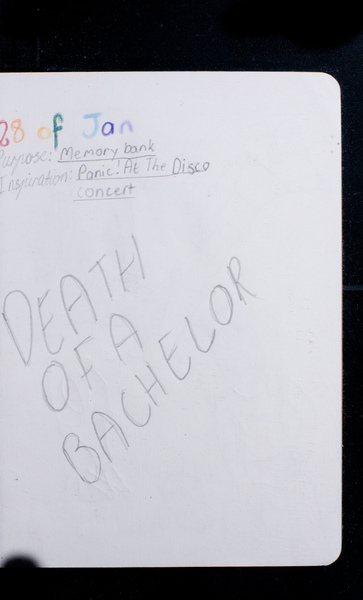 28 of Jan
Purpose: Memory bank
Inspiration: Panic! At The Disco
concert
DEATH
OF A
BACHELOR